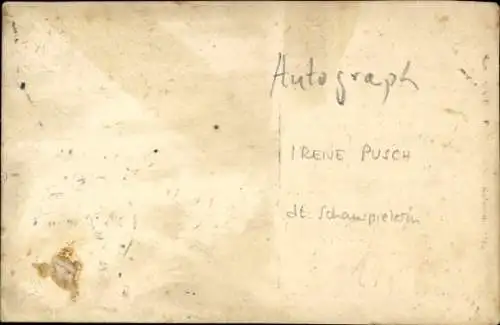 Autograph
IRENE PUSCH
dt. Schauspielerin